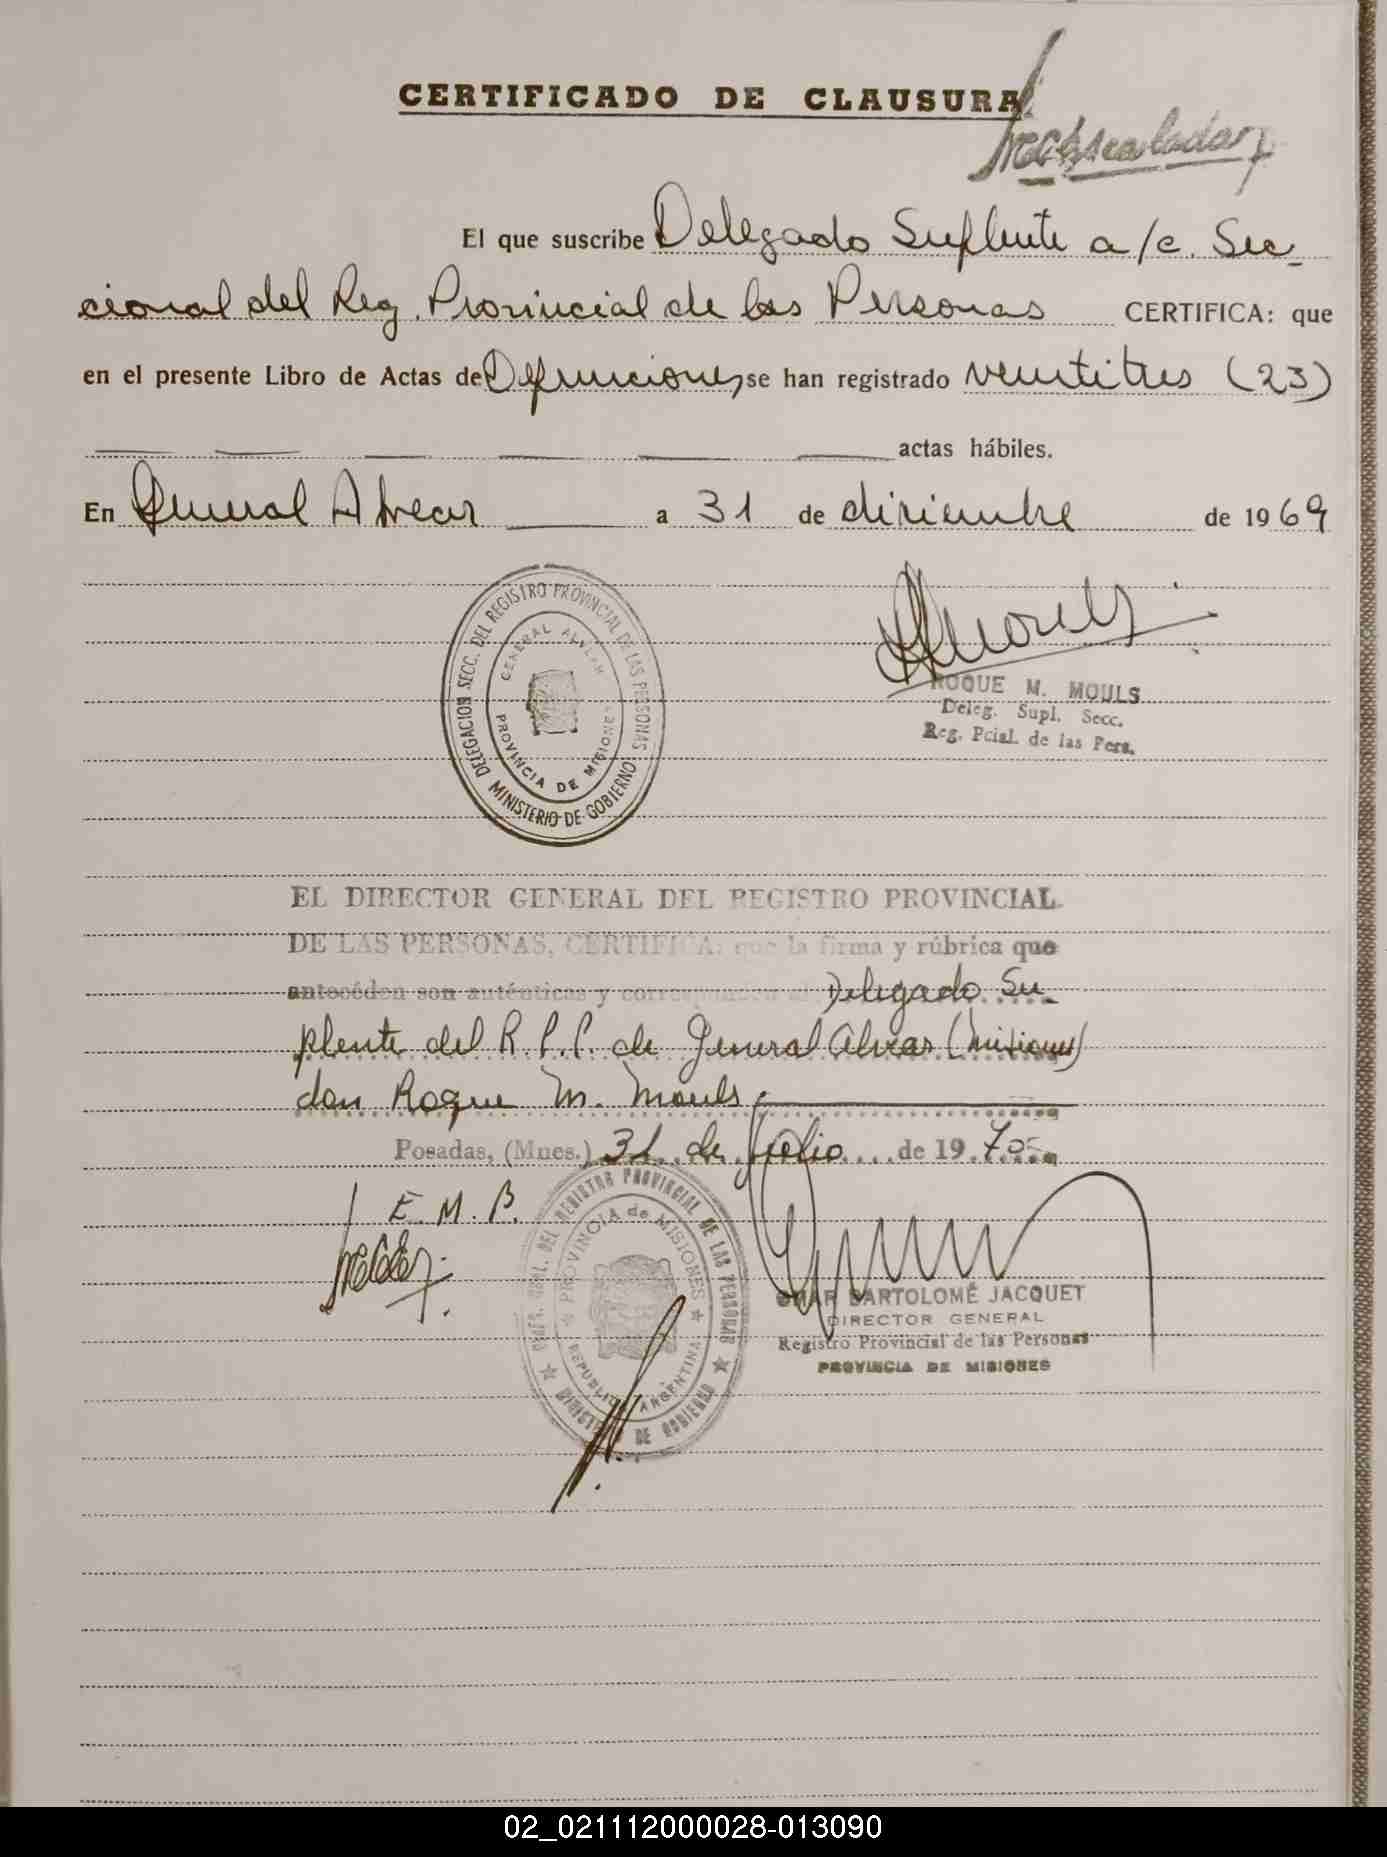 CERTIFICADO DE CLAUSURA
El que suscribe Delegado Suplente a/c. Sec-
cional del Reg. Provincial de las Personas CERTIFICA: que
en el presente Libro de Actas de Defunciones se han registrado veintitres (23)
actas hábiles.
En General Alvear a 31 de diciembre de 1969
DELEGACION SECC. DEL REGISTRO PROVINCIAL DE LAS PERSONAS
MINISTERIO DE GOBIERNO
GENERAL ALVEAR
PROVINCIA DE MISIONES
ROQUE M. MOULS
Deleg. Supl. Secc.
Reg. Pcial. de las Pers.
EL DIRECTOR GENERAL DEL REGISTRO PROVINCIAL
DE LAS PERSONAS, CERTIFICA: que la firma y rúbrica que
antecéden son auténticas y corresponden al Delegado Su-
plente del R.P.P. de General Alvear (Misiones)
don Roque M. Mouls
Posadas, (Mnes.) 31 de Julio de 1970
E. M. B.
DEL REGISTRO PROVINCIAL DE LAS PERSONAS
MINISTERIO DE GOBIERNO
PROVINCIA de MISIONES
REPUBLICA ARGENTINA
OMAR BARTOLOMÉ JACQUET
DIRECTOR GENERAL
Registro Provincial de las Personas
PROVINCIA DE MISIONES
02_021112000028-013090